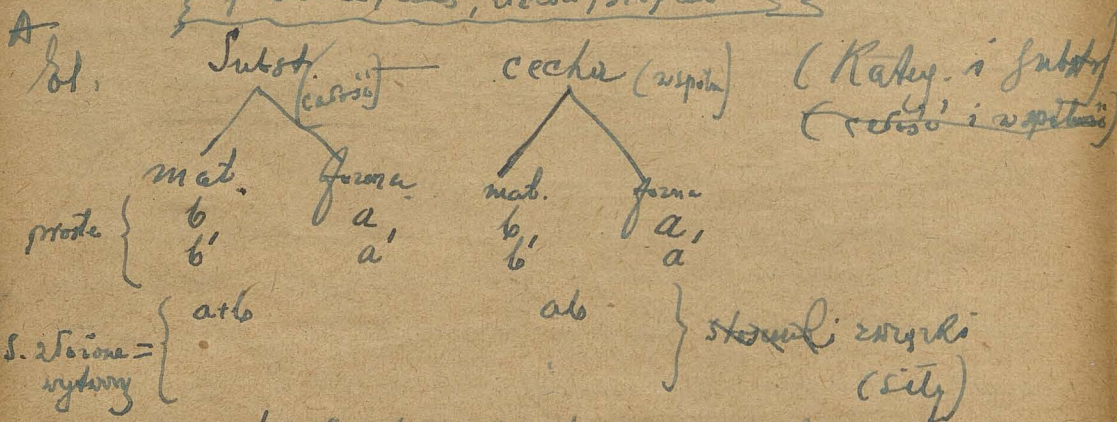 A
El. Subst. (całość) cecha (współn) (Kateg. i Subst)
(całość i współność)
mat. forma mat. forma
proste { b a, b, a,
b' a' b' a
S. złożone = { a+b ab } stosunki związki
wytwory (siły)